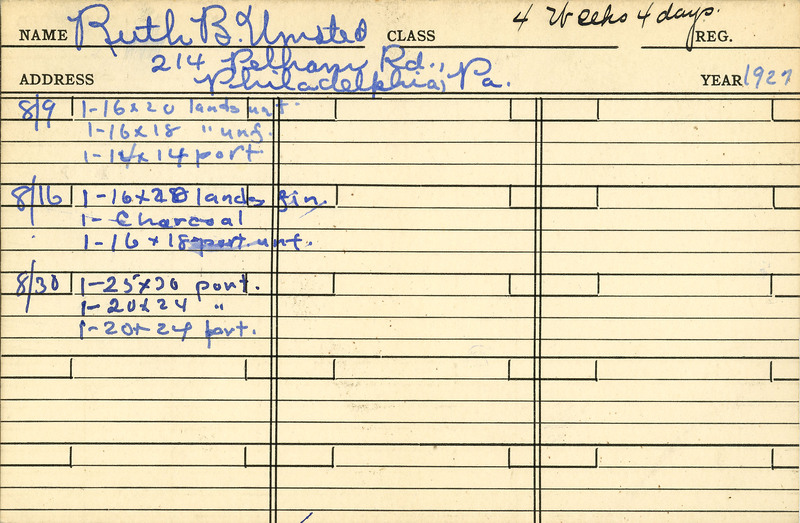 NAME Ruth B. Umsted CLASS 4 Weeks 4 days. REG.
214 Pelham Rd.,
ADDRESS Philadelphia, Pa. YEAR 1927
8/9 1-16x20 lands unf.
1-16x18 " unf.
1-14x14 port
8/16 1-16x20 lands fin.
1- Charcoal
1-16x18 port. unf.
8/30 1-25x30 port.
1-20x24 "
1-20x24 port.